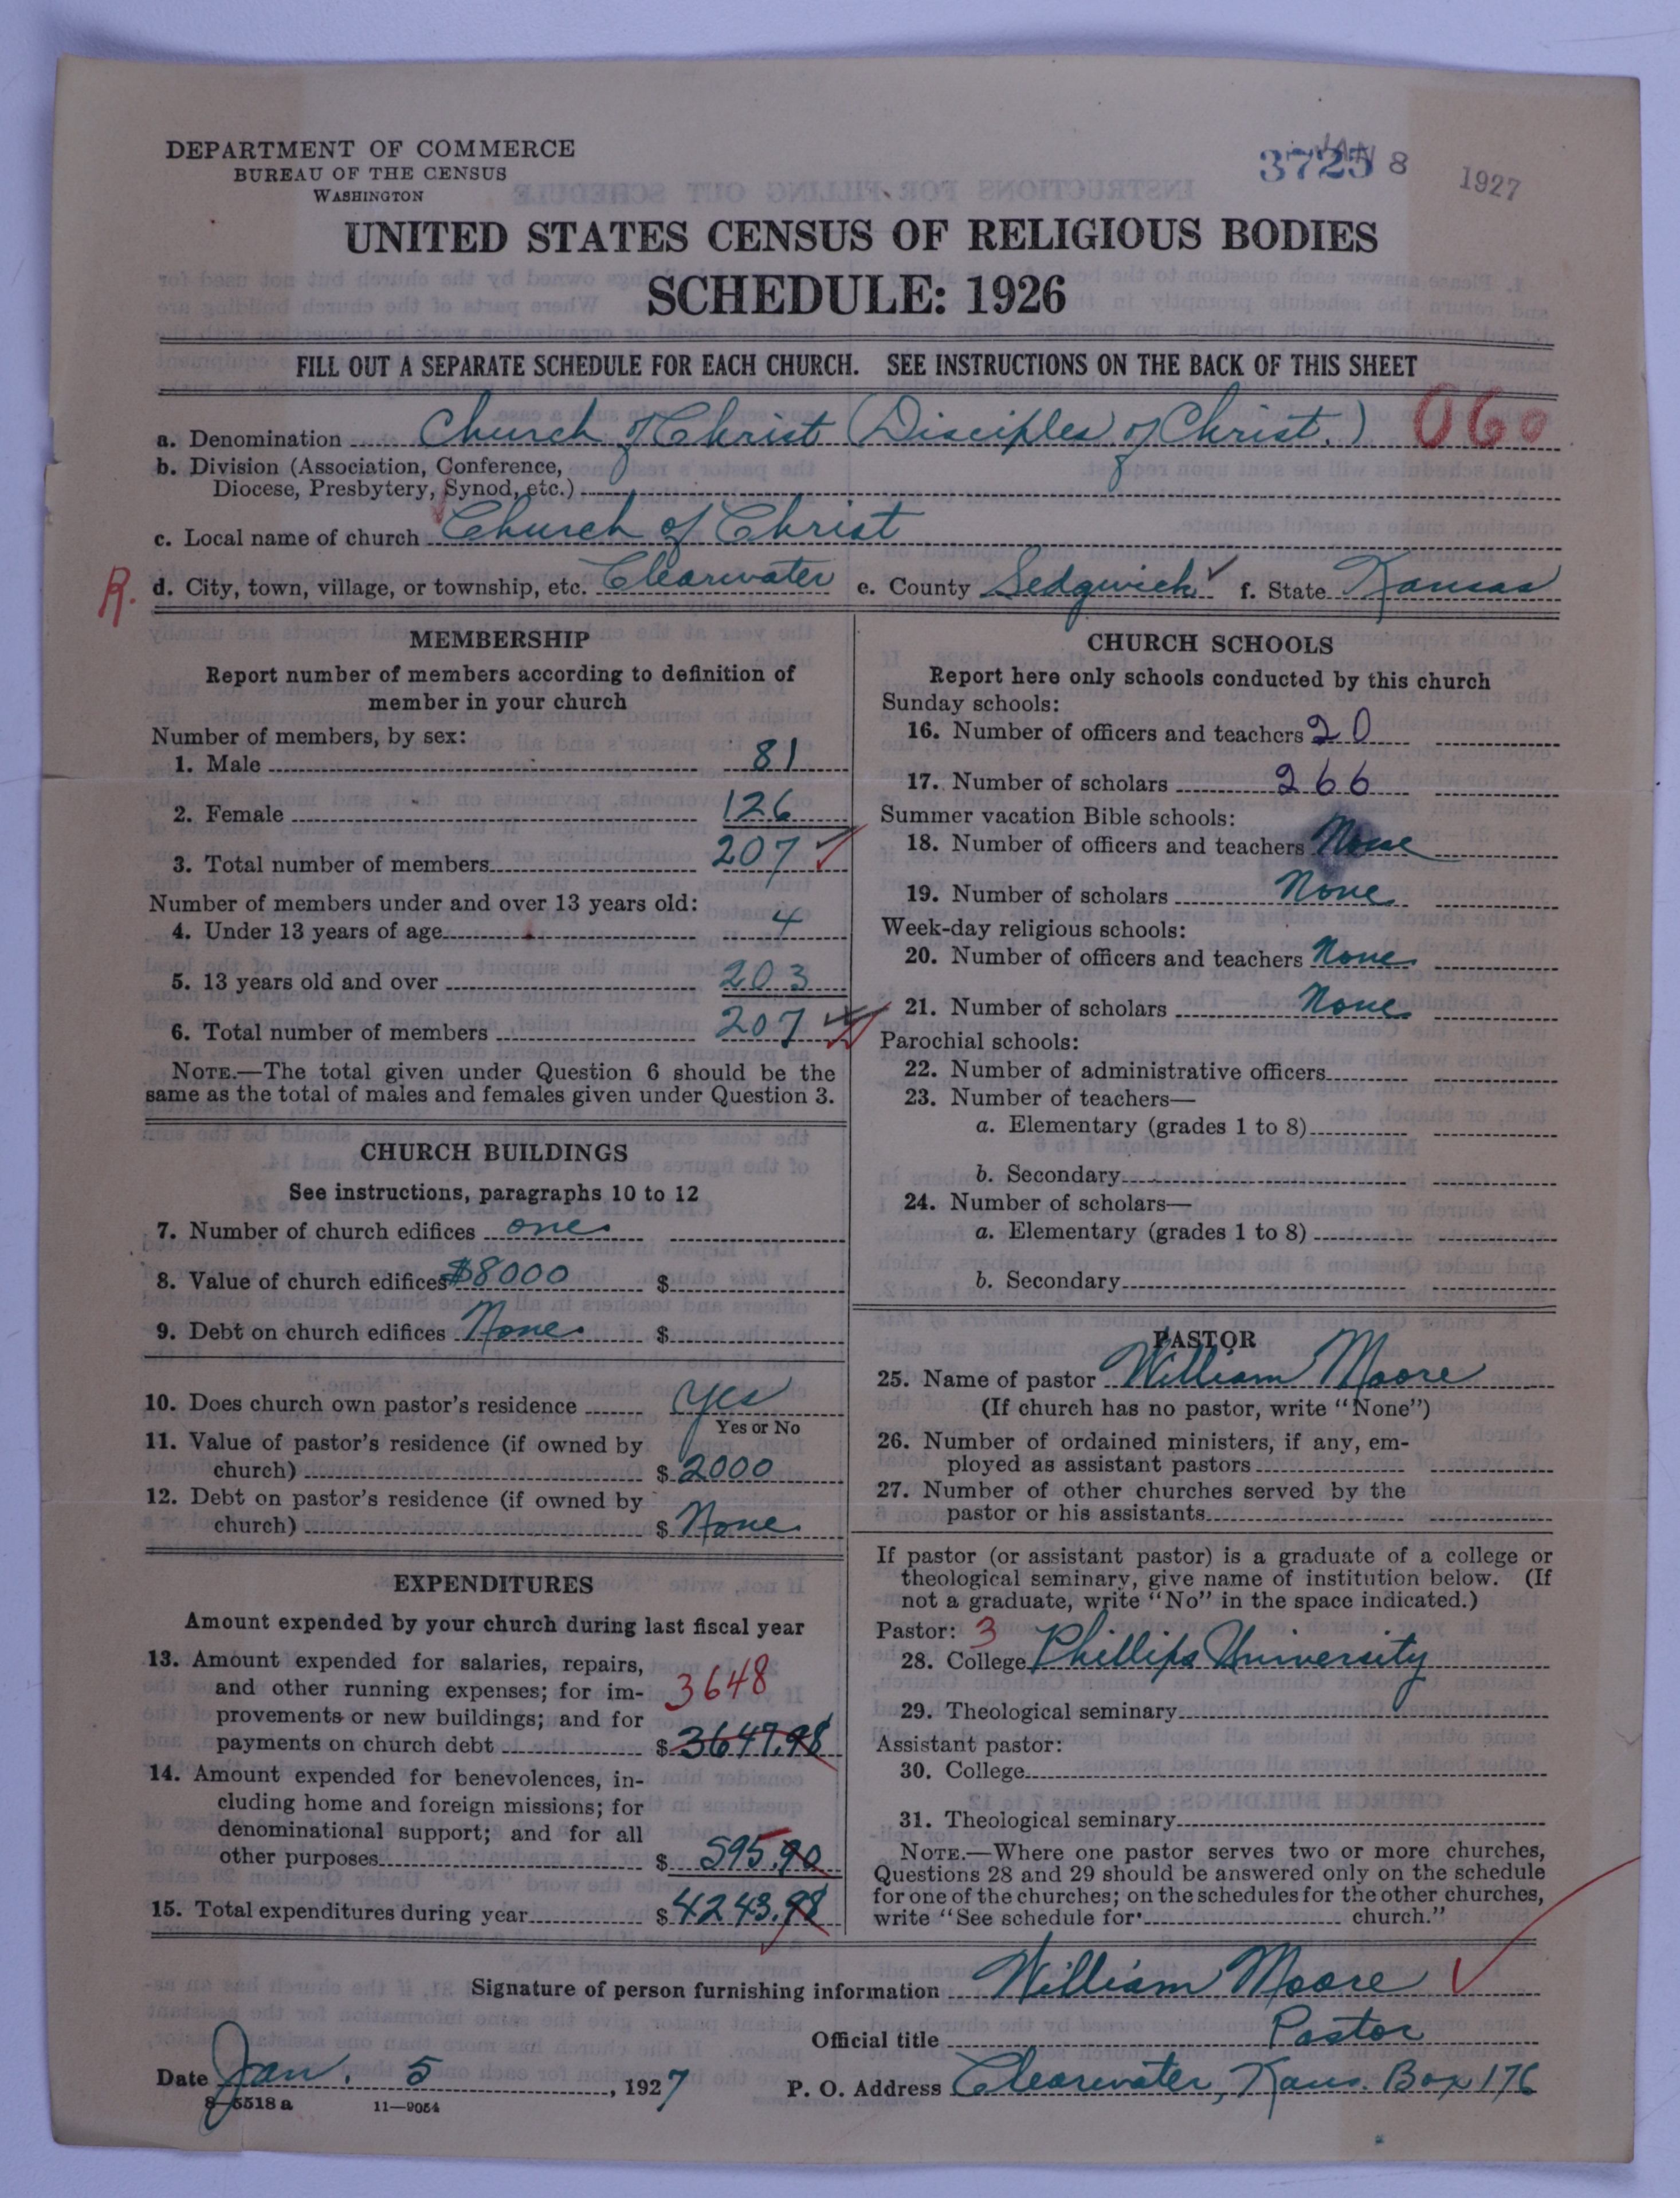 DEPARTMENT OF COMMERCE
BUREAU OF THE CENSUS
WASHINGTON
3725 JAN 8 1927
UNITED STATES CENSUS OF RELIGIOUS BODIES
SCHEDULE: 1926
FILL OUT A SEPARATE SCHEDULE FOR EACH CHURCH. SEE INSTRUCTIONS ON THE BACK OF THIS SHEET
a. Denomination Church of Christ (Disciples of Christ.) 060
b. Division (Association, Conference,
Diocese, Presbytery, Synod, etc.)
c. Local name of church Church of Christ
R. d. City, town, village, or township, etc. Clearwater e. County Sedgwick f. State Kansas
MEMBERSHIP
Report number of members according to definition of
member in your church
Number of members, by sex:
1. Male 81
2. Female 126
3. Total number of members 207
Number of members under and over 13 years old:
4. Under 13 years of age 4
5. 13 years old and over 203
6. Total number of members 207
NOTE.—The total given under Question 6 should be the
same as the total of males and females given under Question 3.
CHURCH BUILDINGS
See instructions, paragraphs 10 to 12
7. Number of church edifices one
8. Value of church edifices $8000 $
9. Debt on church edifices None $
10. Does church own pastor's residence yes
Yes or No
11. Value of pastor's residence (if owned by
church) $ 2000
12. Debt on pastor's residence (if owned by
church) $ None
EXPENDITURES
Amount expended by your church during last fiscal year
13. Amount expended for salaries, repairs,
and other running expenses; for im- 3648
provements or new buildings; and for
payments on church debt $ 3647.98
14. Amount expended for benevolences, in-
cluding home and foreign missions; for
denominational support; and for all
other purposes $ 595.90
15. Total expenditures during year $ 4243.98
CHURCH SCHOOLS
Report here only schools conducted by this church
Sunday schools:
16. Number of officers and teachers 20
17. Number of scholars 266
Summer vacation Bible schools:
18. Number of officers and teachers None
19. Number of scholars None
Week-day religious schools:
20. Number of officers and teachers None
21. Number of scholars None
Parochial schools:
22. Number of administrative officers
23. Number of teachers—
a. Elementary (grades 1 to 8)
b. Secondary
24. Number of scholars—
a. Elementary (grades 1 to 8)
b. Secondary
PASTOR
25. Name of pastor William Moore
(If church has no pastor, write "None")
26. Number of ordained ministers, if any, em-
ployed as assistant pastors
27. Number of other churches served by the
pastor or his assistants
If pastor (or assistant pastor) is a graduate of a college or
theological seminary, give name of institution below. (If
not a graduate, write "No" in the space indicated.)
Pastor: 3
28. College Phillips University
29. Theological seminary
Assistant pastor:
30. College
31. Theological seminary
NOTE.—Where one pastor serves two or more churches,
Questions 28 and 29 should be answered only on the schedule
for one of the churches; on the schedules for the other churches,
write "See schedule for church."
Signature of person furnishing information William Moore
Official title Pastor
Date Jan. 5, 1927 P. O. Address Clearwater, Kans. Box 176
8—5518 a 11—9054